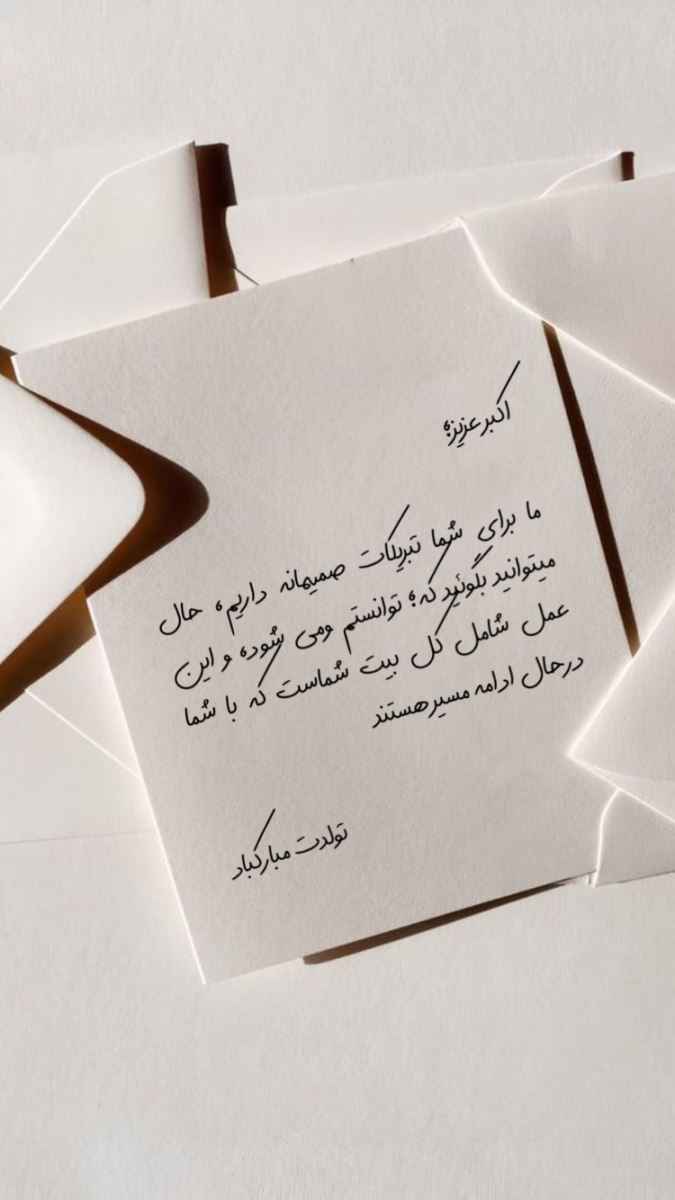 اکبر عزیز؛
ما برای شما تبریکات صمیمانه داریم، حال
میتوانید بگوئید که؛ توانستم ومی شود، و این
عمل شامل کل بیت شماست که با شما
درحال ادامه مسیر هستند
تولدت مبارکباد